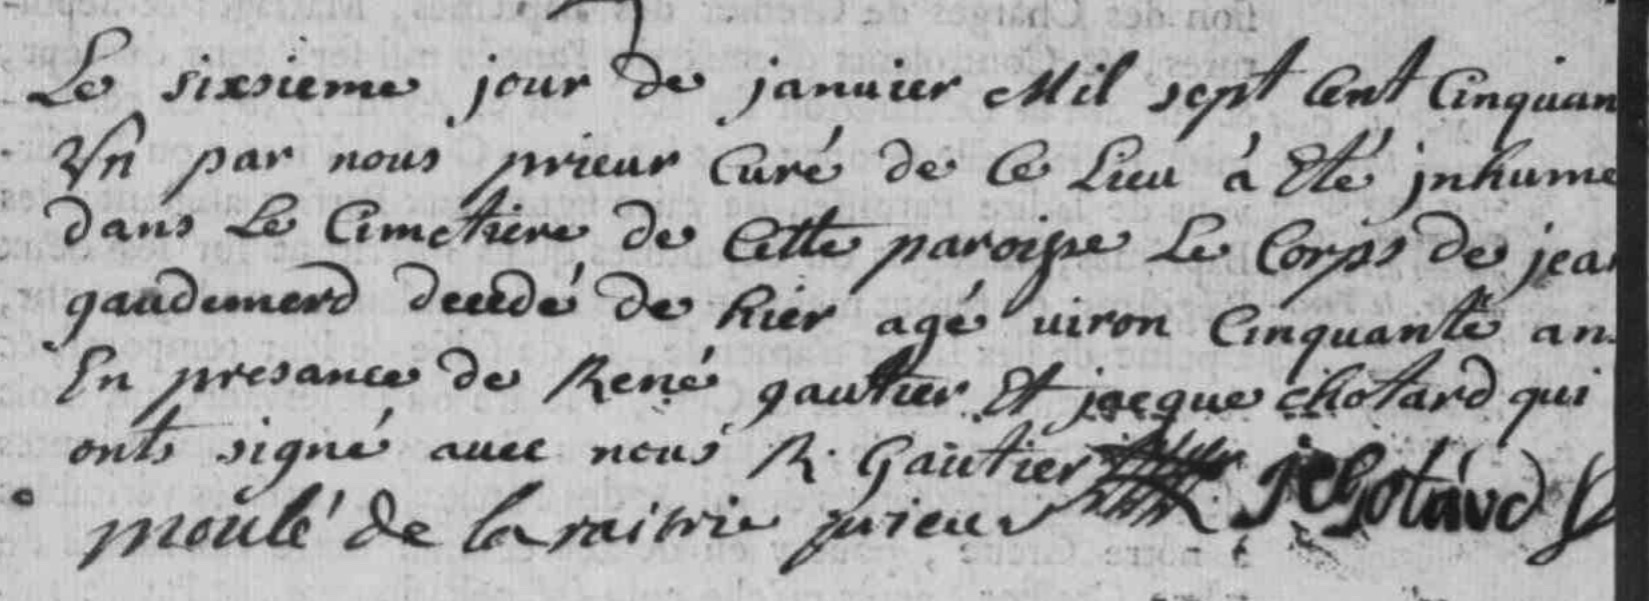 Le sixsieme jour de januier Mil sept Cent Cinquan
Un par nous prieur Curé de Ce Lieu à Eté jnhume
dans Le Cimetiere de Cette paroisse Le Corps de jean
gaudemerd decedé de hier agé uiron Cinquante ans
En presance de René gautier Et jacque chotard qui
onts signé auec nous R. Gautier j chotard
moulé de la raitrie prieur